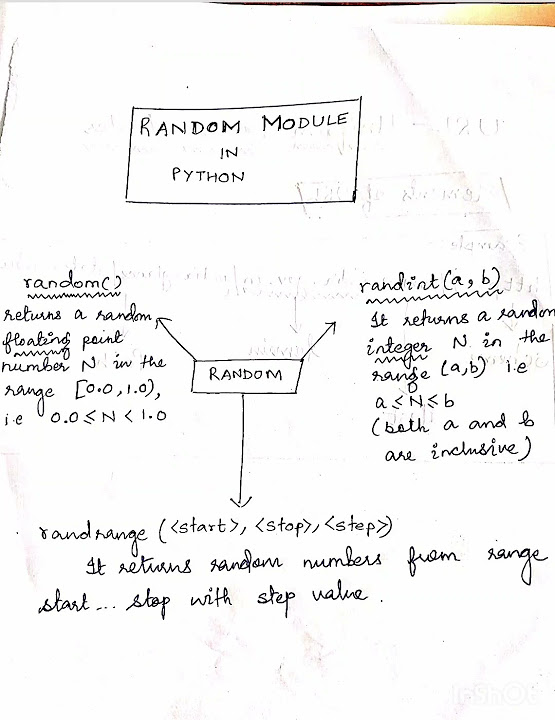 RANDOM MODULE
IN
PYTHON
random()
returns a random
floating point
number N in the
range [0.0, 1.0),
i.e 0.0 ≤ N < 1.0
randint(a, b)
It returns a random
integer N in the
range (a,b) i.e
a ≤ N ≤ b
(both a and b
are inclusive)
RANDOM
randrange (<start>, <stop>, <step>)
It returns random numbers from range
start... stop with step value.
InShOt